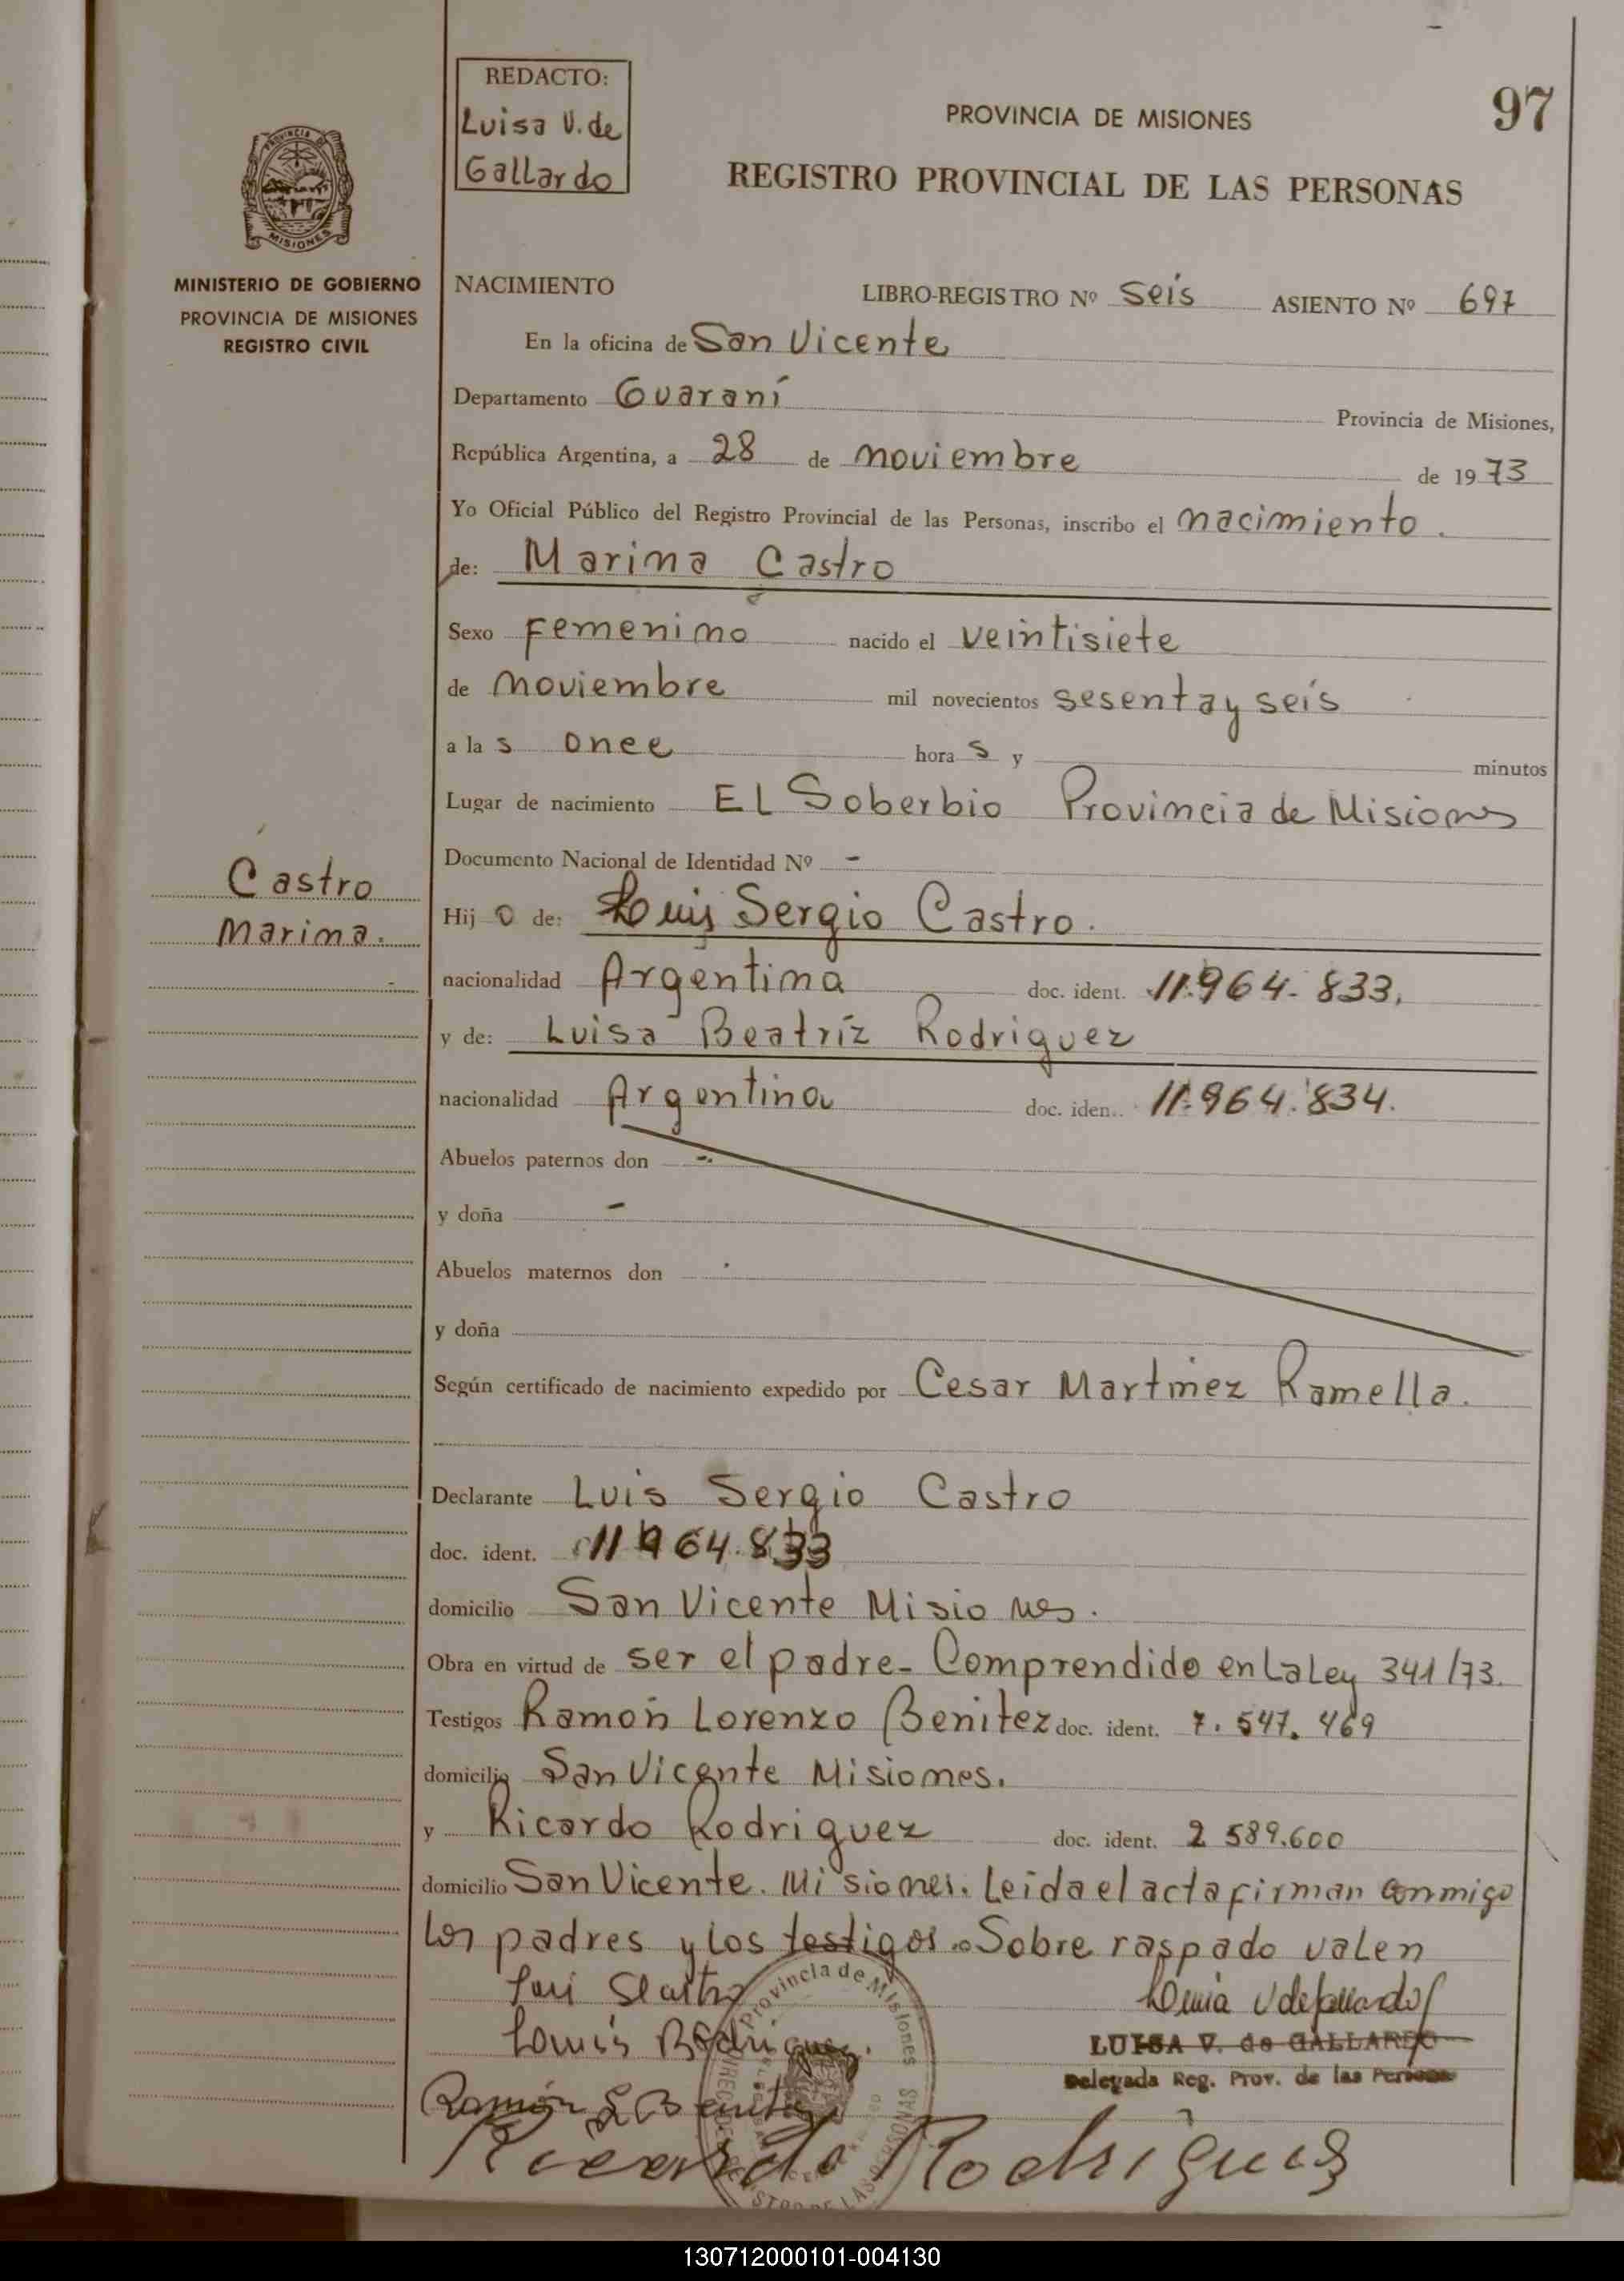 REDACTO:
Luisa V. de
Gallardo
PROVINCIA DE MISIONES
97
REGISTRO PROVINCIAL DE LAS PERSONAS
PROVINCIA
MISIONES
MINISTERIO DE GOBIERNO
PROVINCIA DE MISIONES
REGISTRO CIVIL
NACIMIENTO LIBRO-REGISTRO Nº Seis ASIENTO Nº 697
En la oficina de San Vicente
Departamento Guaraní Provincia de Misiones,
República Argentina, a 28 de noviembre de 1973
Yo Oficial Público del Registro Provincial de las Personas, inscribo el nacimiento.
de: Marina Castro
Sexo Femenino nacido el veintisiete
de noviembre mil novecientos sesenta y seis
a las once horas y minutos
Lugar de nacimiento El Soberbio Provincia de Misiones
Documento Nacional de Identidad Nº -
Castro
Marina.
Hijo de: Luis Sergio Castro.
nacionalidad Argentina doc. ident. 11.964.833,
y de: Luisa Beatriz Rodriguez
nacionalidad Argentina doc. iden.. 11.964.834.
Abuelos paternos don -.
y doña -
Abuelos maternos don
y doña
Según certificado de nacimiento expedido por Cesar Martinez Ramella.
Declarante Luis Sergio Castro
doc. ident. 11964.833
domicilio San Vicente Misiones.
Obra en virtud de ser el padre- Comprendido en La Ley 341/73.
Testigos Ramón Lorenzo Benitez doc. ident. 7.547.469
domicilio San Vicente Misiones.
y Ricardo Rodriguez doc. ident. 2 589.600
domicilio San Vicente. Misiones. Leida el acta firman conmigo
los padres y los testigos. Sobre raspado valen
Provincia de Misiones
LUISA V. de GALLARDO
Delegada Reg. Prov. de las Personas
Ramón L Benitez
Ricardo Rodrigues
130712000101-004130